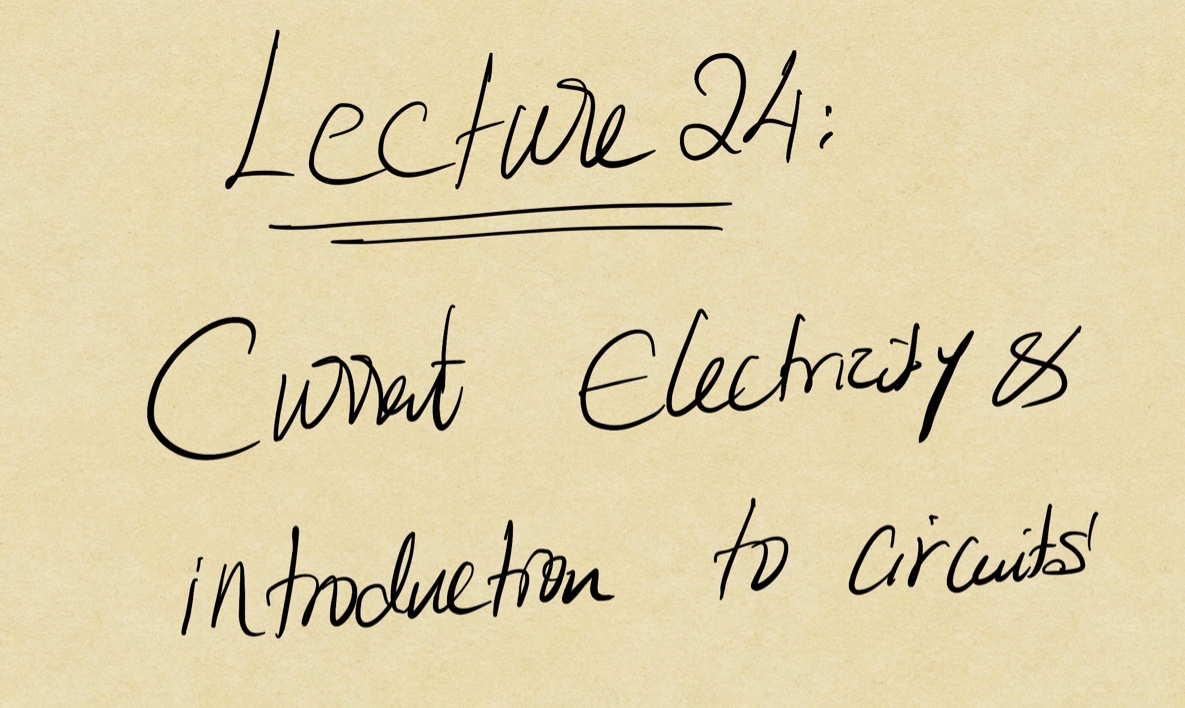 Lecture 24:
Current Electricity &
introduction to circuits